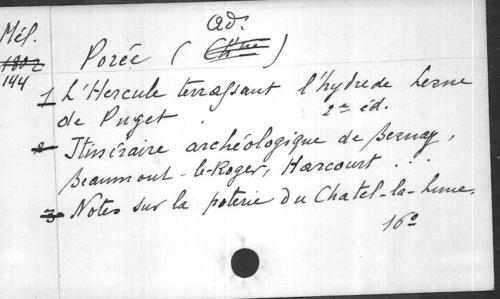 Mél.
1802
144
Ad.
Porée (Chne)
1 L'Hercule terrassant l'hydre de Lerne
de Puget. 2e éd.
2 Itinéraire archéologique de Bernay,
Beaumont-le-Roger, Harcourt...
3 Notes sur la poterie du Chatel-la-Lune.
16o